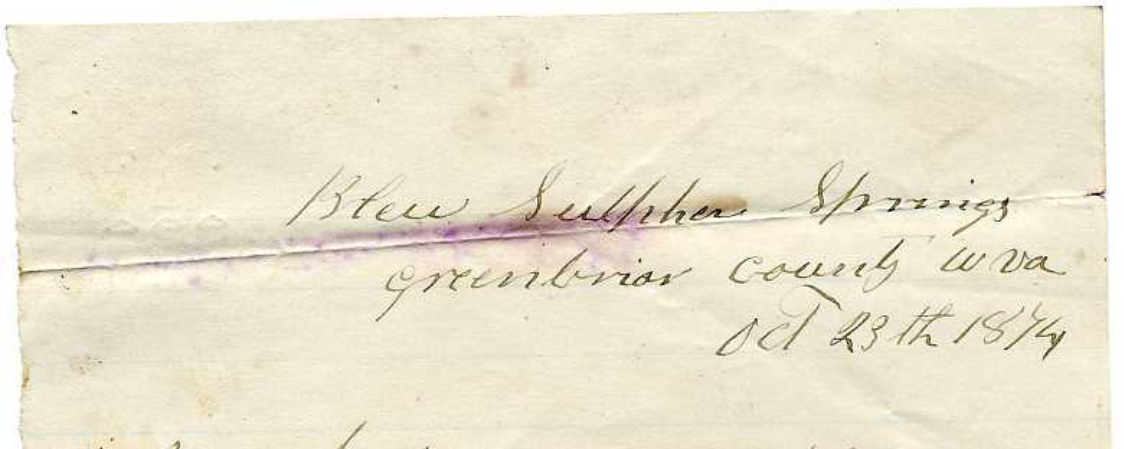 Bleu Sulpher Springs
greenbriar county w va
Oct 23th 1874